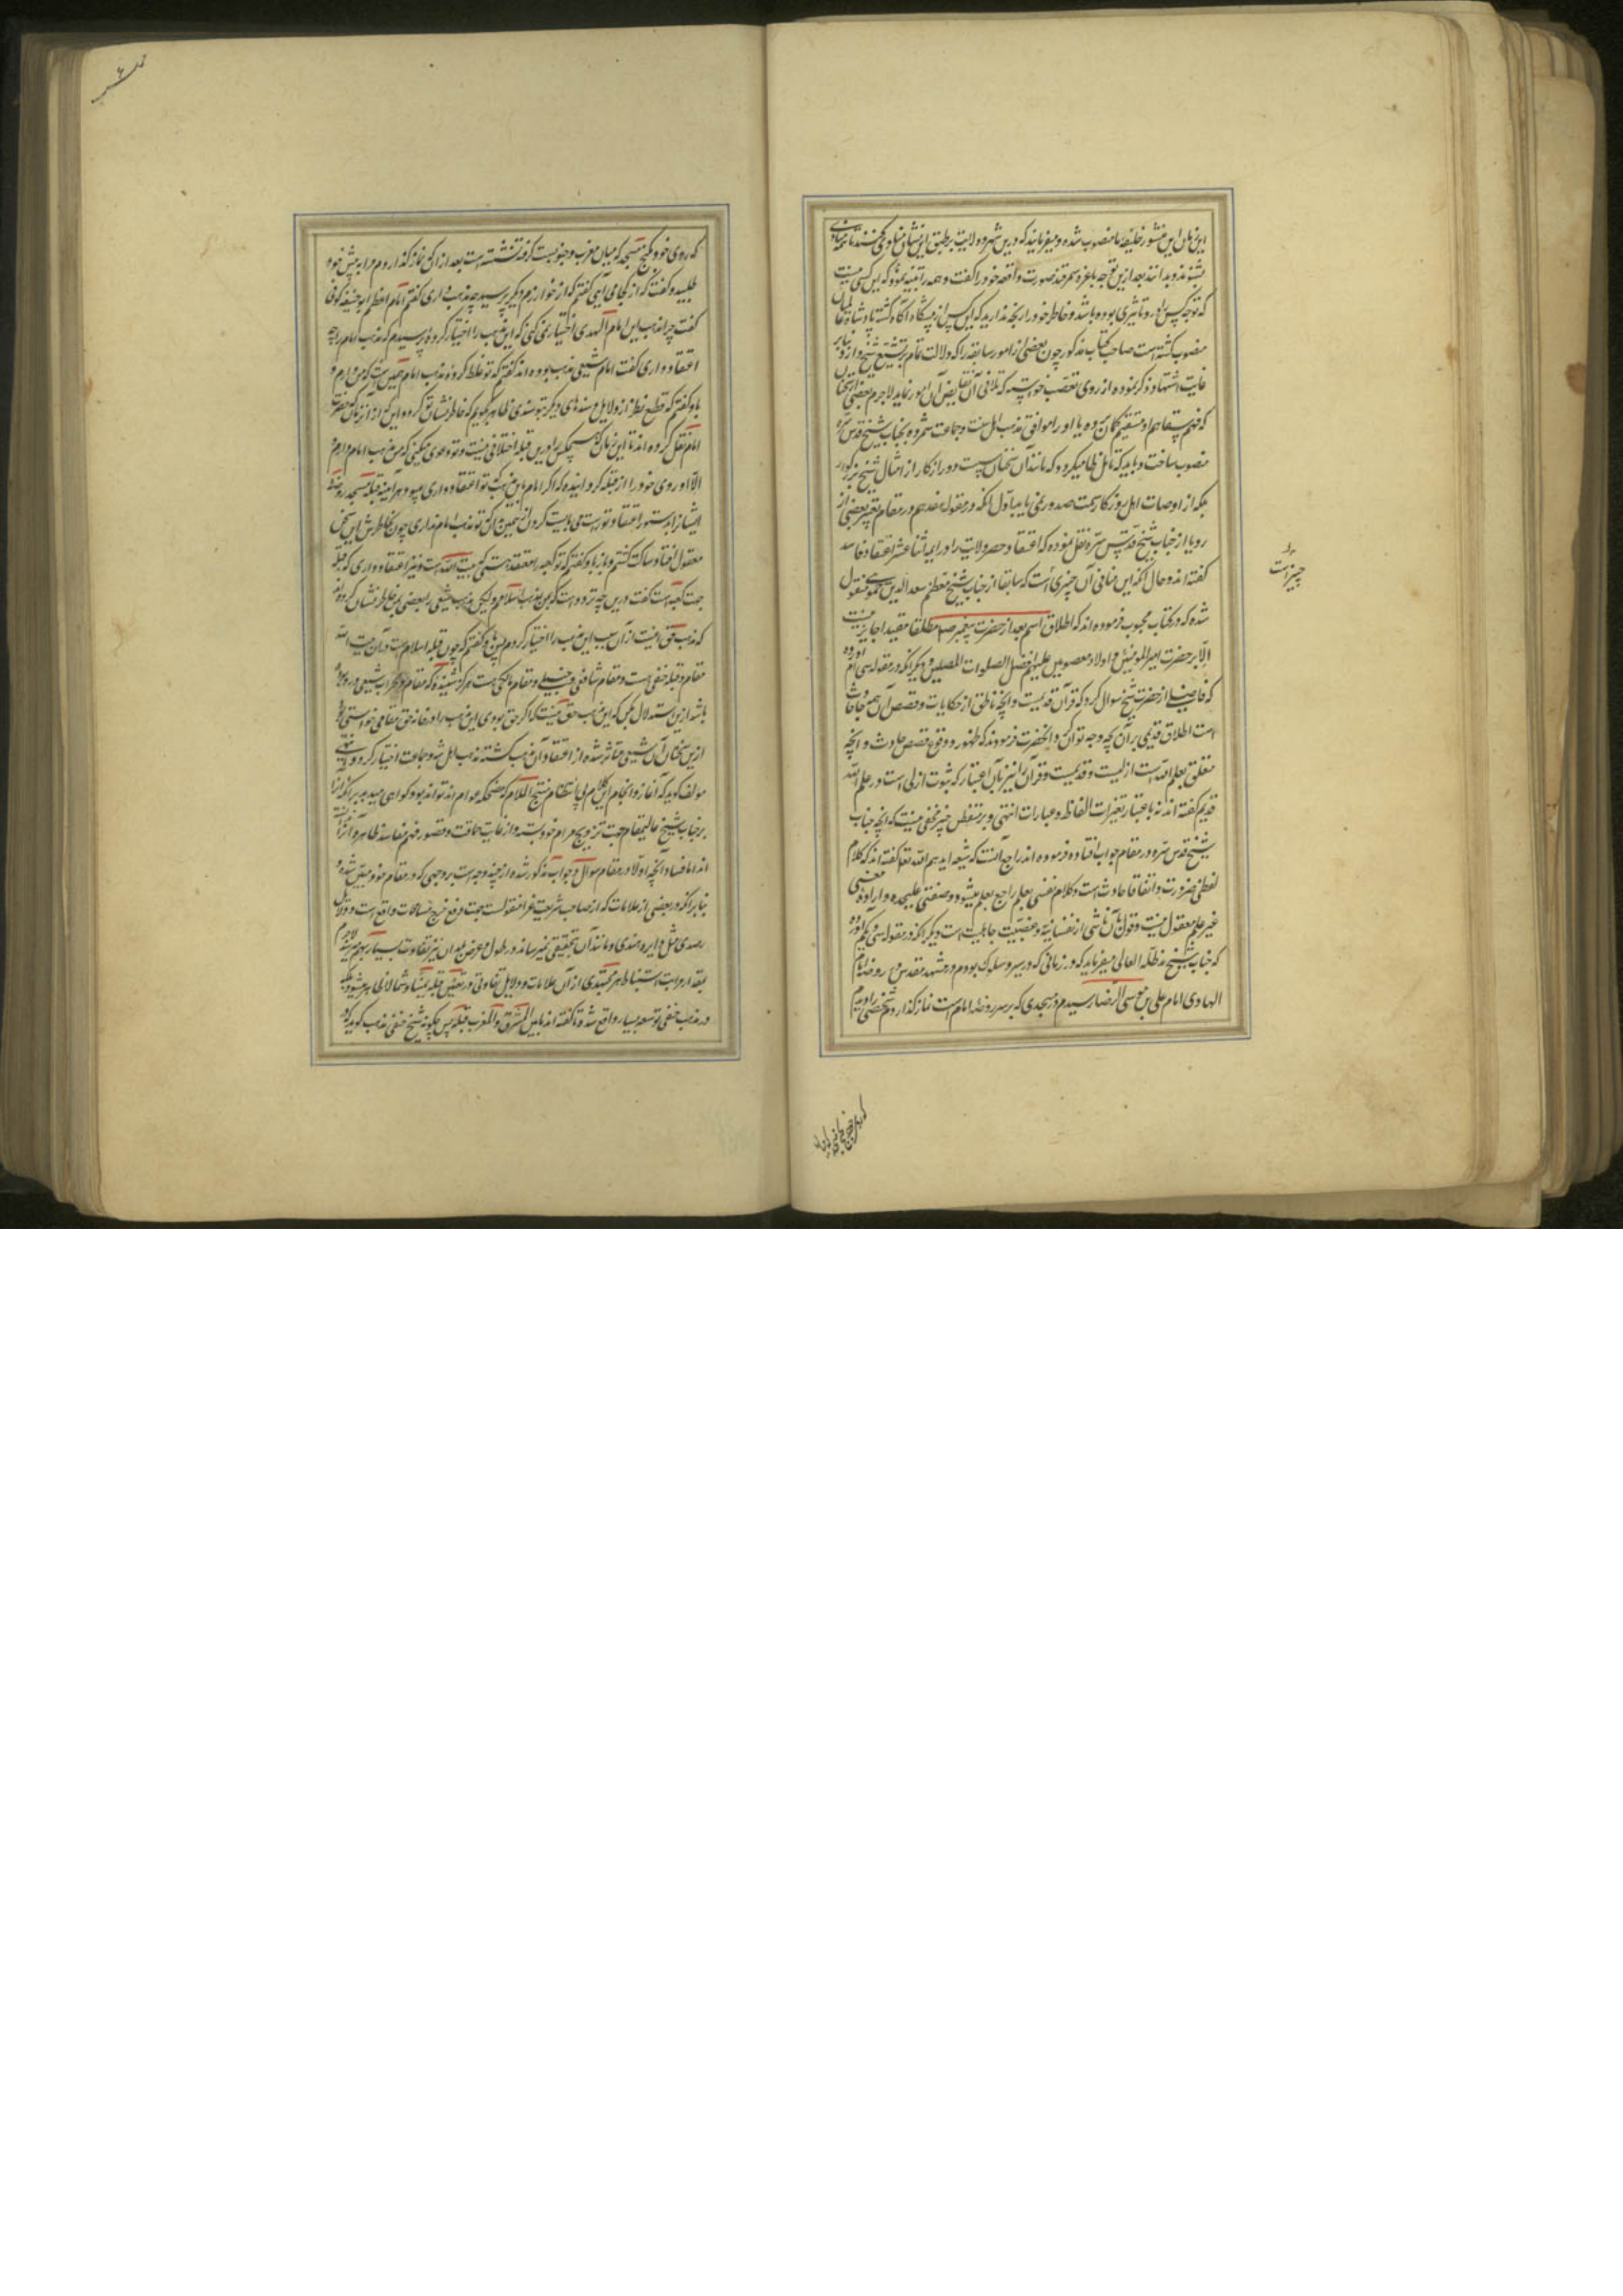 این زمان این منشور خلیفه ما منصوب شده و میفرمایند که درین شهر و ولایت بر طبق این نشان منادی کنند تا همه
بشنوند و بدانند بعد ازین توجه باعزه سمرقند صورت واقعه خود را گفت و همه را تنبیه نمود که این کسی نیست
که توجه کسی را درو تاثیری بوده باشد و خاطر خود را رنجه ندارید که این پسر از پیشگاه آگاه گشته پادشاه عالمیان
منصوب گشته است صاحب کتاب مذکور چون بعضی از امور سابقه را که دلالت تمام بر تشیع شیخ دارد بنابر
غایت اشتهار ذکر نموده از روی تعصب خواسته که تلافی آن بنقیض آن امور نماید لاجرم بعضی از سخنان
که فهم سقامت او مستقیم گمان برده یا او را موافق مذهب اهل سنت و جماعت شمرده بجناب شیخ قدس سره
منصوب ساخت و باید که تامل ظاهر میگردد که مانند آن سخنان پست دور از کار از امثال شیخ بزرگوار
بلکه از اوساط اهل روزگار سمت صدور نمی یابد اول انکه در مقوله هفدهم در مقام تعبیر بعضی از
رویا از جناب شیخ قدس سره نقل نموده که اعتقاد حصر ولایت را در ایمه اثنا عشر اعتقاد فاسد
گفته اند و حال آنکه این منافی آن چیزی است که سابقا از جناب شیخ معظم سعد الدین حموی منقول
شده که در کتاب محبوب فرموده اند که اطلاق اسم بعد از حضرت پیغمبر صلعم مطلقا مقیدا جایز نیست
الا بر حضرت امیر المومنین و اولاد معصومین علیهم افضل الصلوات المصلین و دیگر انکه در مقوله سی ام آورده
که فاضلی از حضرت شیخ سوال کرد که قرآن قدیمست و آنچه ناطق از حکایات و قصص آن همه حادث
است اطلاق قدیمی بر آن بچه وجه توان کرد انحضرت فرمودند که ظهور و وقوع قصص حادث و آنچه
متعلق بعلم الله است ازلیست و قدیمست و قرآن را نیز بآن اعتبار که ثبوت ازلی است در علم الله
قدیم گفته اند نه باعتبار تغیرات الفاظ و عبارات انتهی و بر متفطن خبیر مخفی نیست که آنچه جناب
شیخ قدس سره در مقام جواب افتاده فرموده اند راجع آنست که شیعه ایدهم الله تعالی گفته اند که کلام
لفظی ضرورت و اتفاقا حادث است و کلام نفسی بعلم راجع بعلم میشود و صفتی علیحده و اراده معنی
غیر علم معقول نیست و قول بآن ناشی از نفسانیة و عصبیت جاهلیت است دیگر انکه در مقوله سی و یکم آورده
که جناب شیخ مد ظله العالی میفرماید که در زمانی که در سیر و سلوک بودم و در مشهد مقدس و روضه امام
الهادی امام علی بن موسی الرضا رسیدم در مسجدی که بر سر روضه امام است نماز گذاردم شخصی را دیدم
چیزیست
که روی خود بکنج مسجد که میان مغرب و جنوبست کرده نشسته است بعد از آنکه نماز گذاردم مرا به پیش خود
طلبید و گفت که از کجا می آیی گفتم که از خوارزم دیگر پرسید چه مذهب داری گفتم امام اعظم ابو حنیفه کوفی
گفت چرا مذهب این امام الهدی اختیار نمی کنی که این مذهب را اختیار کرده پرسیدم که مذهب امام را چه
اعتقاد داری گفت امام شیعی مذهب بوده اند گفتم که تو غلط کرده مذهب امام همین است که من دارم و
باو گفتم که قطع نظر از دلایل و سندهای دیگر بتو سندی ظاهر بگویم که خاطر نشان تو گردد و این که از آن زمان که حضرت
امام نقل کرده اند تا این زمان که هیچکس را درین قبله اختلافی نیست و تو دعوی میکنی که من مذهب امام دارم
الا او روی خود را از قبله گردانیده که اگر امام باین مذهب که تو اعتقاد داری میبود هر آینه قبله مسجد روضه
ایشان را بدستور اعتقاد تو راست می بایست کردن از همین آنکه تو مذهب امام نداری چون بخاطرش این سخن
معقول افتاد ساکت گشتم و باز باو گفتم که تو کعبه را معتقد هستی که بیت الله است و نیز اعتقاد داری که قبله
جهت کعبه است گفت درین چه تردد است که من بمذهب اسلامم ولیکن مذهب شیعی را بعضی بمن خاطر نشان کرده اند
که مذهب حق اینست از آن سبب این مذهب را اختیار کردم من باو گفتم که چون قبله اسلام است و آن بیت الله
مقام و قبله حنفی است و مقام شافعی و حنبلی و مقام مالکی هست هرگز شنیده که مقام و محراب شیعی در و بوده
باشد ازین استدلال کن که این مذهب حق نیست که اگر حق بودی این مذهب را در خانه حق مقامی بودی
ازین سخنان آن شیعی متاثر شده از اعتقاد آن مذهب گشته مذهب اهل سنه و جماعت اختیار کرد انتهی
مولف گوید که آغاز و انجام این کلام بی انتظام منتج الکلام که مضحکه عوام اند تواند بود گواهی میدهد بر آنکه آنرا
بر جناب شیخ عالیمقام جهت ترویج مرام خود بسته و از غایت حماقت و قصور فهم مفاسد ظاهره آنرا
اند اما فساد آنچه اولا در مقام سوال و جواب مذکور شده از چند وجه است بر وجهی که در مقام خود مبین شده
بنابر آنکه در بعضی از علامات که از صاحب شریعت غرا منقولست جهت دفع حرج مسامحات واقع است و دلایل
رصدی مثل دایره هندی و مانند آن تحقیقی نمیرساند در طول و عرض بلدان نیز تفاوت بسیار بهم میرسد لاجرم
بقدر مراتب استنباط هر مجتهدی از آن علامات و دلایل تفاوتی در تعیین قبله یمینا و شمالا ظاهر میشود بلکه
در مذهب حنفی توسعه بسیار واقع شده تا گفته اند ما بین المشرق و المغرب قبله پس چگونه شیخ حنفی مذهب گوید که